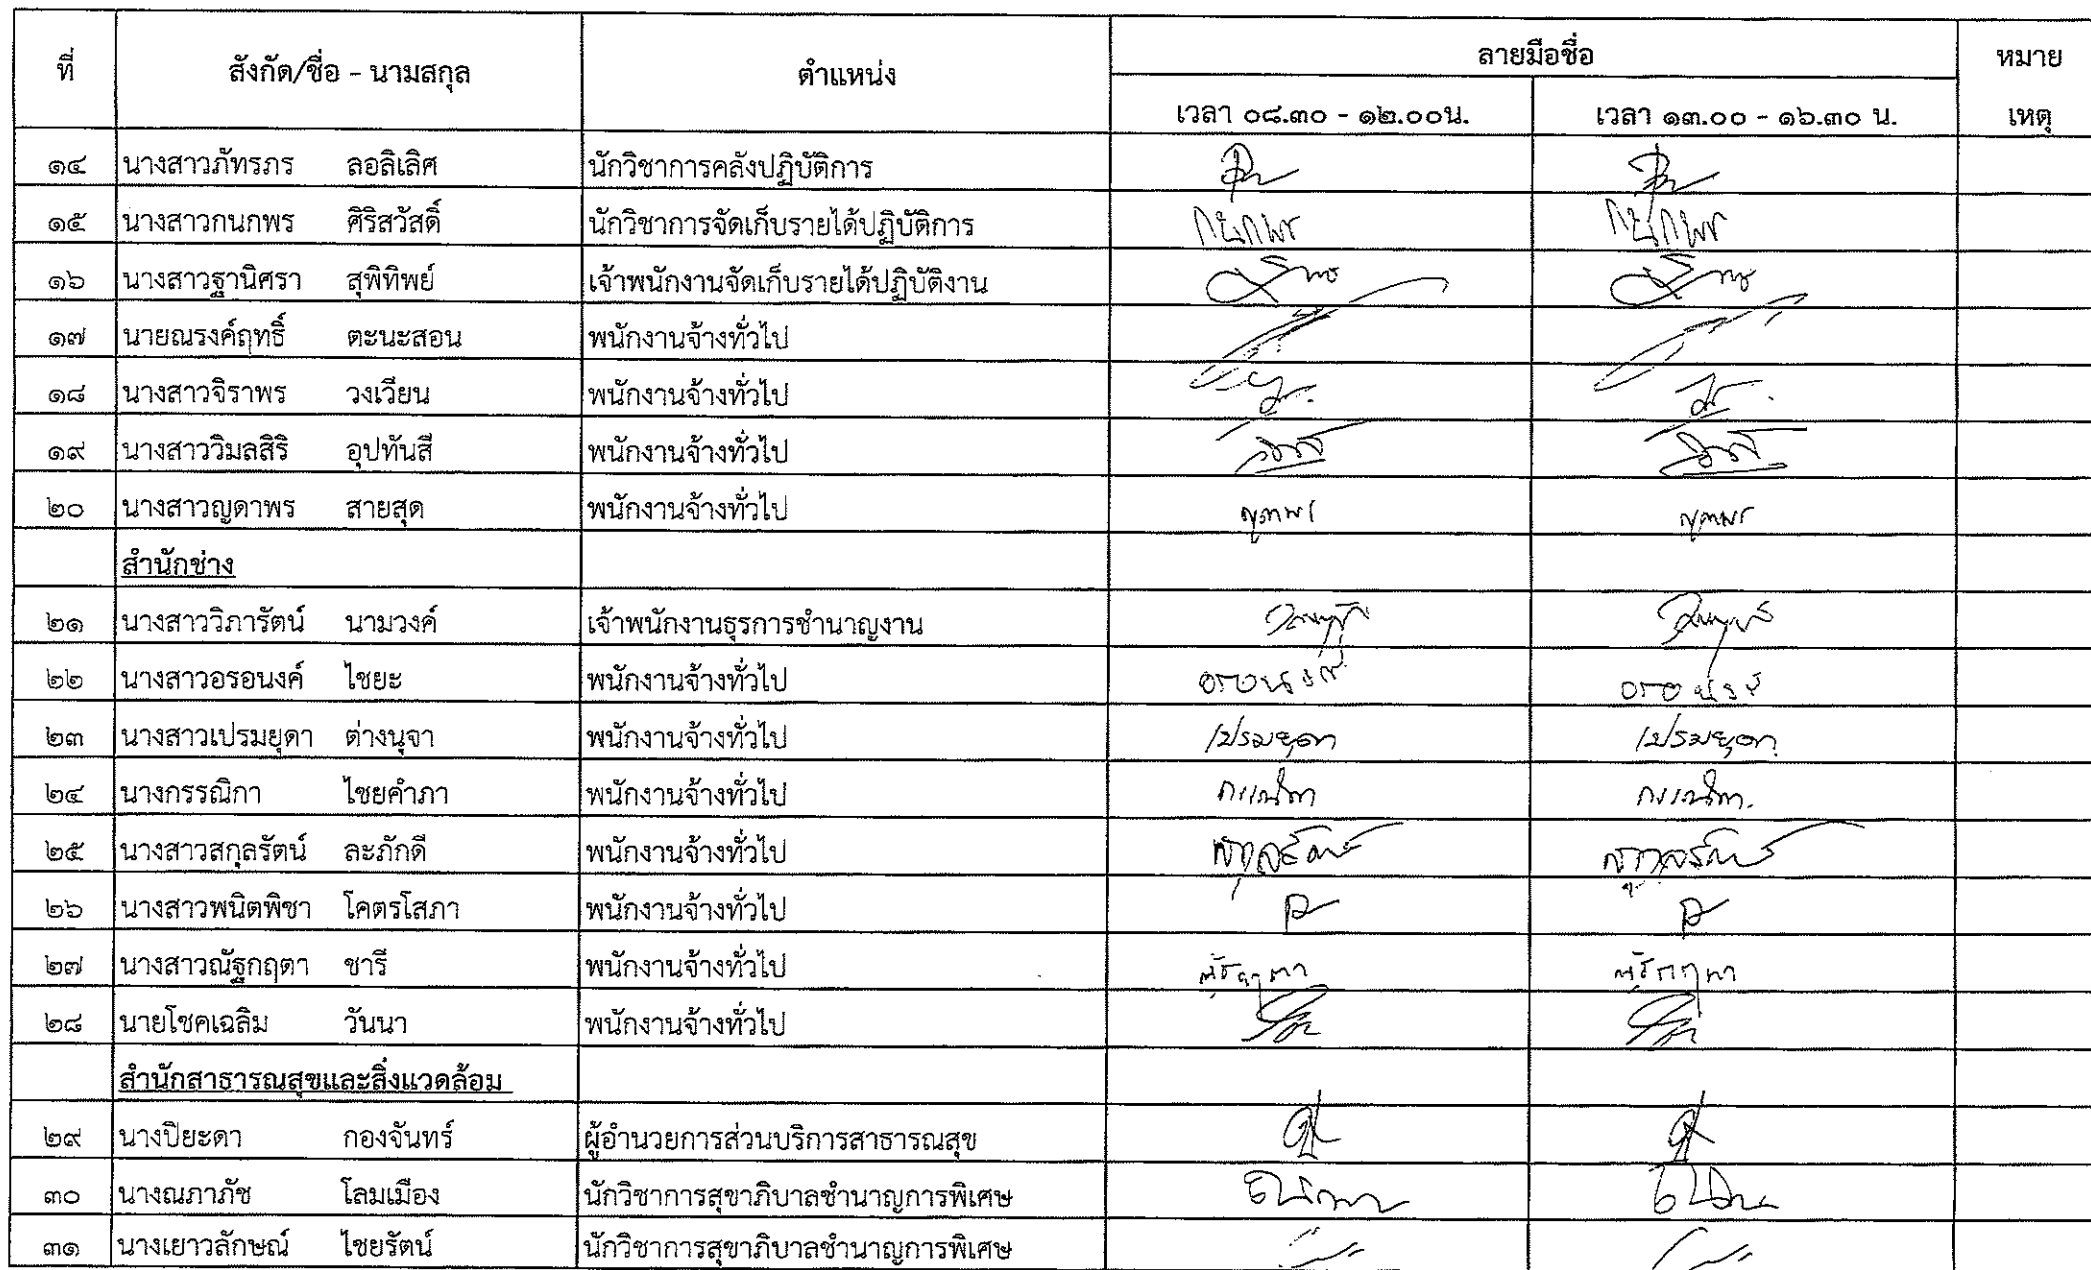 ที่ สังกัด/ชื่อ - นามสกุล ตำแหน่ง ลายมือชื่อ หมาย
เวลา ๐๘.๓๐ - ๑๒.๐๐น. เวลา ๑๓.๐๐ - ๑๖.๓๐ น. เหตุ
๑๔ นางสาวภัทรภร ลอลิเลิศ นักวิชาการคลังปฏิบัติการ
๑๕ นางสาวกนกพร ศิริสวัสดิ์ นักวิชาการจัดเก็บรายได้ปฏิบัติการ กนกพร กนกพร
๑๖ นางสาวฐานิศรา สุพิทิพย์ เจ้าพนักงานจัดเก็บรายได้ปฏิบัติงาน
๑๗ นายณรงค์ฤทธิ์ ตะนะสอน พนักงานจ้างทั่วไป
๑๘ นางสาวจิราพร วงเวียน พนักงานจ้างทั่วไป
๑๙ นางสาววิมลสิริ อุปทันสี พนักงานจ้างทั่วไป
๒๐ นางสาวญดาพร สายสุด พนักงานจ้างทั่วไป ญดาพร ญดาพร
สำนักช่าง
๒๑ นางสาววิภารัตน์ นามวงค์ เจ้าพนักงานธุรการชำนาญงาน
๒๒ นางสาวอรอนงค์ ไชยะ พนักงานจ้างทั่วไป อรอนงค์ อรอนงค์
๒๓ นางสาวเปรมยุดา ต่างนุจา พนักงานจ้างทั่วไป เปรมยุดา เปรมยุดา
๒๔ นางกรรณิกา ไชยคำภา พนักงานจ้างทั่วไป กรรณิกา กรรณิกา
๒๕ นางสาวสกุลรัตน์ ละภักดี พนักงานจ้างทั่วไป สกุลรัตน์ สกุลรัตน์
๒๖ นางสาวพนิตพิชา โคตรโสภา พนักงานจ้างทั่วไป
๒๗ นางสาวณัฐกฤตา ชารี พนักงานจ้างทั่วไป ณัฐกฤตา ณัฐกฤตา
๒๘ นายโชคเฉลิม วันนา พนักงานจ้างทั่วไป
สำนักสาธารณสุขและสิ่งแวดล้อม
๒๙ นางปิยะดา กองจันทร์ ผู้อำนวยการส่วนบริการสาธารณสุข
๓๐ นางณภาภัช โลมเมือง นักวิชาการสุขาภิบาลชำนาญการพิเศษ
๓๑ นางเยาวลักษณ์ ไชยรัตน์ นักวิชาการสุขาภิบาลชำนาญการพิเศษ